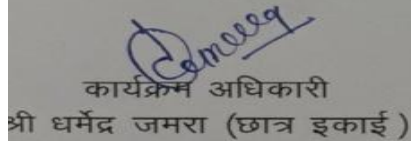 कार्यक्रम अधिकारी
श्री धर्मेंद्र जमरा (छात्र इकाई )